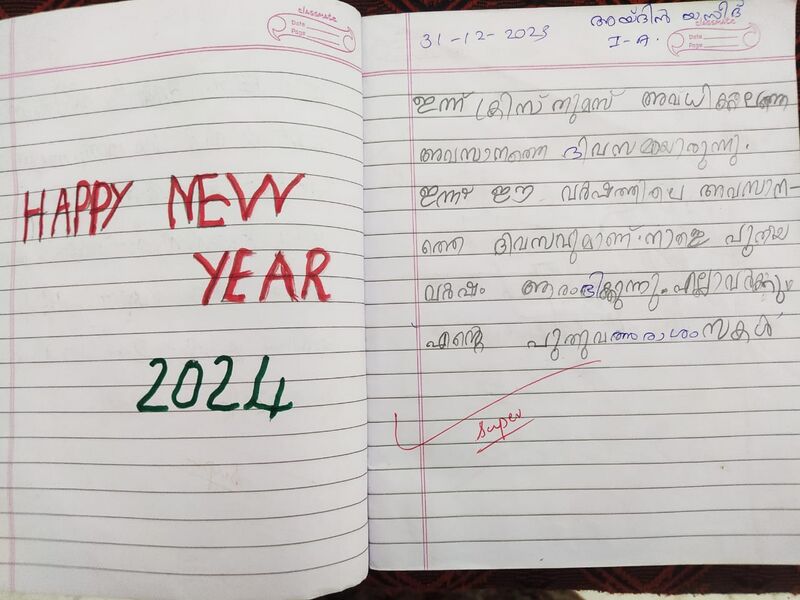 classmate
Date
Page
HAPPY NEW
YEAR
2024
classmate
Date
Page
31-12-2023
അയ്ദിൻ യസീദ്
I-A.
ഇന്ന് ക്രിസ്തുമസ് അവധിക്കാലത്തെ
അവസാനത്തെ ദിവസമായിരുന്നു.
ഇന്ന് ഈ വർഷത്തിലെ അവസാന-
ത്തെ ദിവസവുമാണ്. നാളെ പുതിയ
വർഷം ആരംഭിക്കുന്നു. എല്ലാവർക്കും
എന്റെ പുതുവത്സരാശംസകൾ
super